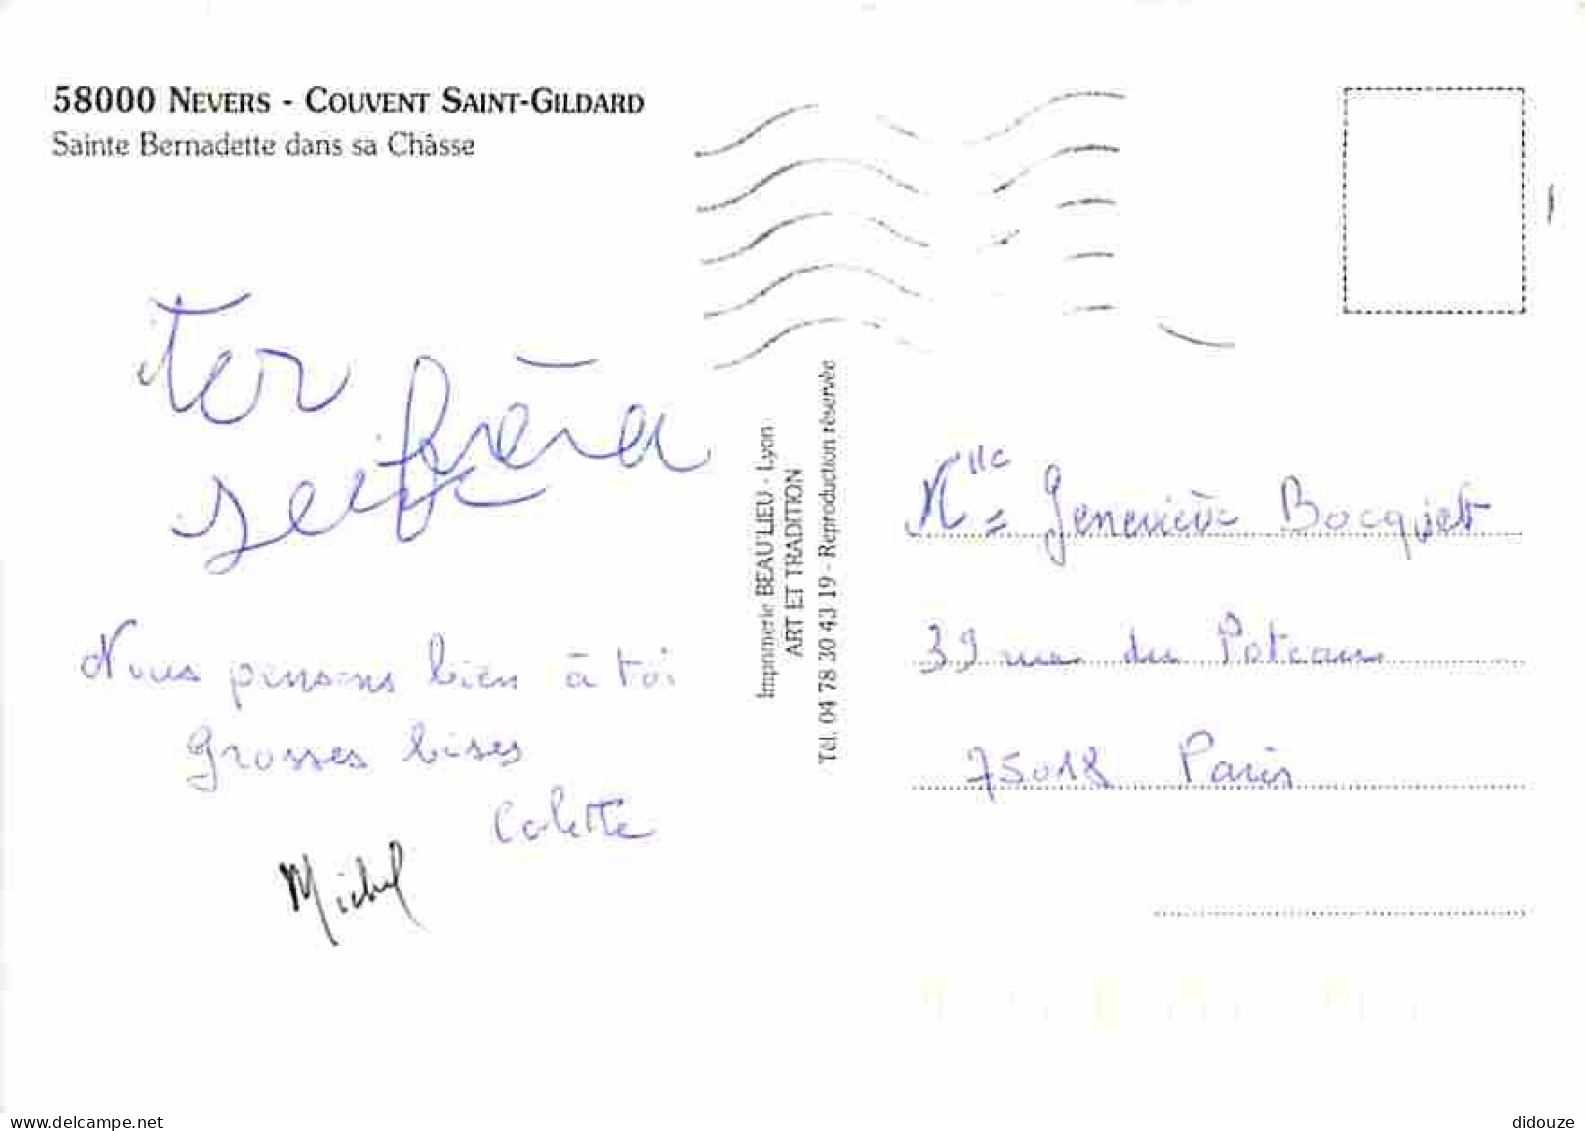 58000 NEVERS - COUVENT SAINT-GILDARD
Sainte Bernadette dans sa Châsse
Nous pensons bien à toi
Grosses bises
Colette
Michel
Imprimerie BEAU'LIEU - Lyon
ART ET TRADITION
Tél. 04 78 30 43 19 - Reproduction réservée
Mlle Geneviève Bocquet
39 rue du Poteau
75018 Paris
www.delcampe.net
didouze